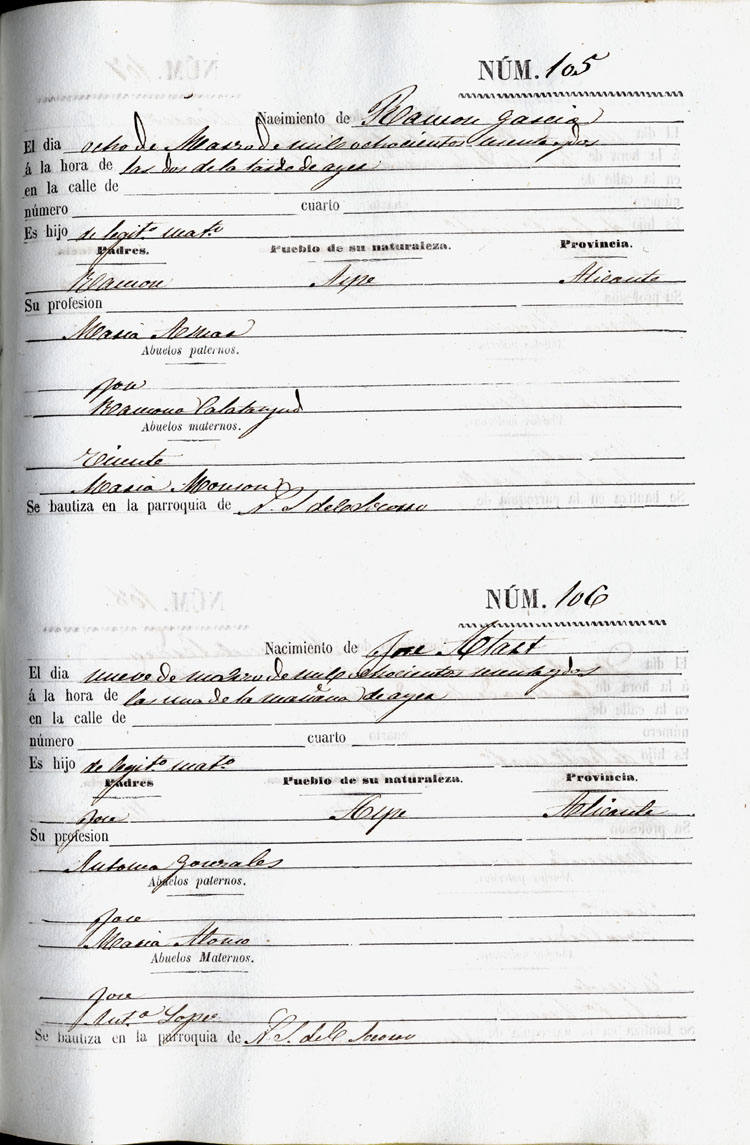 NÚM. 105
Nacimiento de Ramon Garcia
El dia ocho de Marzo de mil ochocientos
á la hora de las dos de la tarde de ayer
en la calle de
número cuarto
Es hijo de legit.º mat.º
Padres. Pueblo de su naturaleza. Provincia.
Ramon Aspe Alicante
Su profesion
Maria
Abuelos paternos.
Jose
Ramona Calatayud
Abuelos maternos.
Vicente
Maria Monzon
Se bautiza en la parroquia de N. S. del Socorro
NÚM. 106
Nacimiento de Jose
El dia nueve de marzo de mil ochocientos
á la hora de las una de la mañana de ayer
en la calle de
número cuarto
Es hijo de legit.º mat.º
Padres Pueblo de su naturaleza. Provincia.
Jose Aspe Alicante
Su profesion
Antonia Gonzales
Abuelos paternos.
Jose
Maria Alonso
Abuelos Maternos.
Jose
Ant.ª Lopez
Se bautiza en la parroquia de N. S. del Socorro